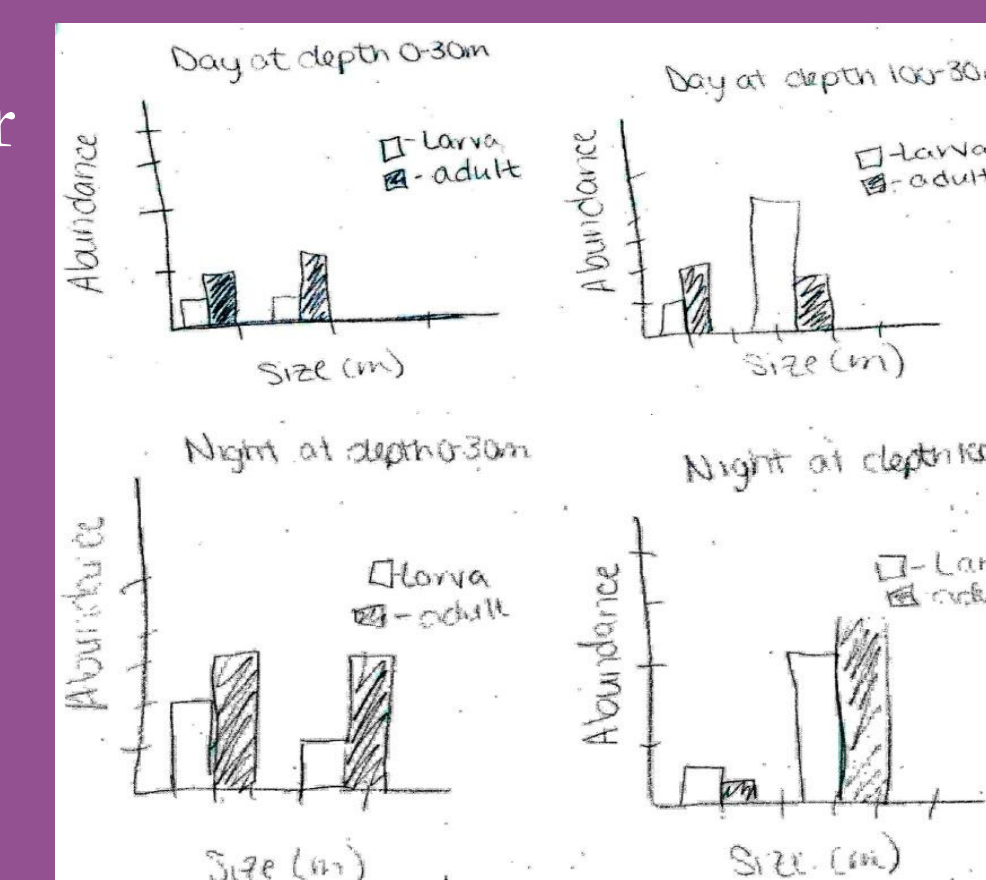 r
Day at depth 0-30m
Abundance
-Larva
-adult
Size (m)
Day at depth 100-30
Abundance
-Larva
-adult
Size (m)
Night at depth 0-30m
Abundance
Larva
-adult
Size (m)
Night at depth
Abundance
-Lar
Size (m)